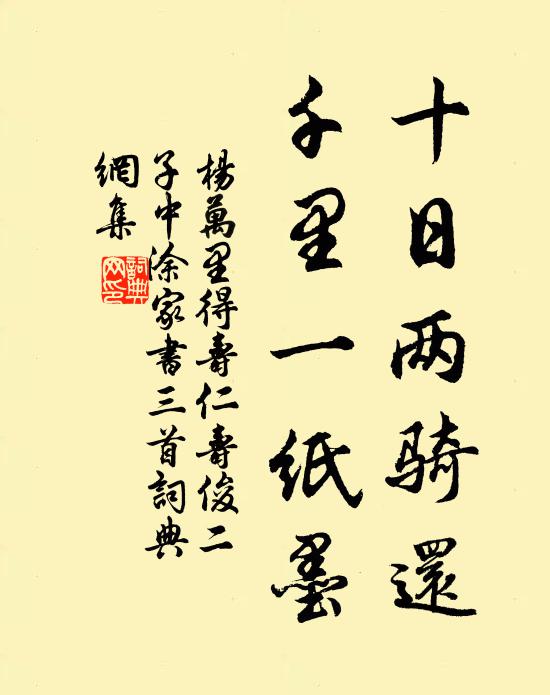 十日两骑還
千里一紙墨
楊萬里得壽仁壽俊二
子中涂家書三首詞典
網集
詞典
网印